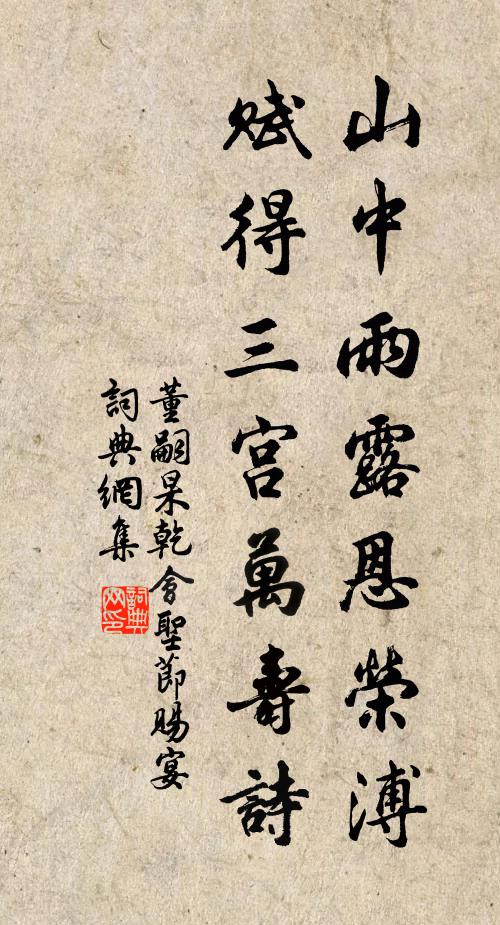 山中雨露恩榮溥
賦得三宮萬壽詩
董嗣杲乾會聖節賜宴
詞典網集
詞典網印